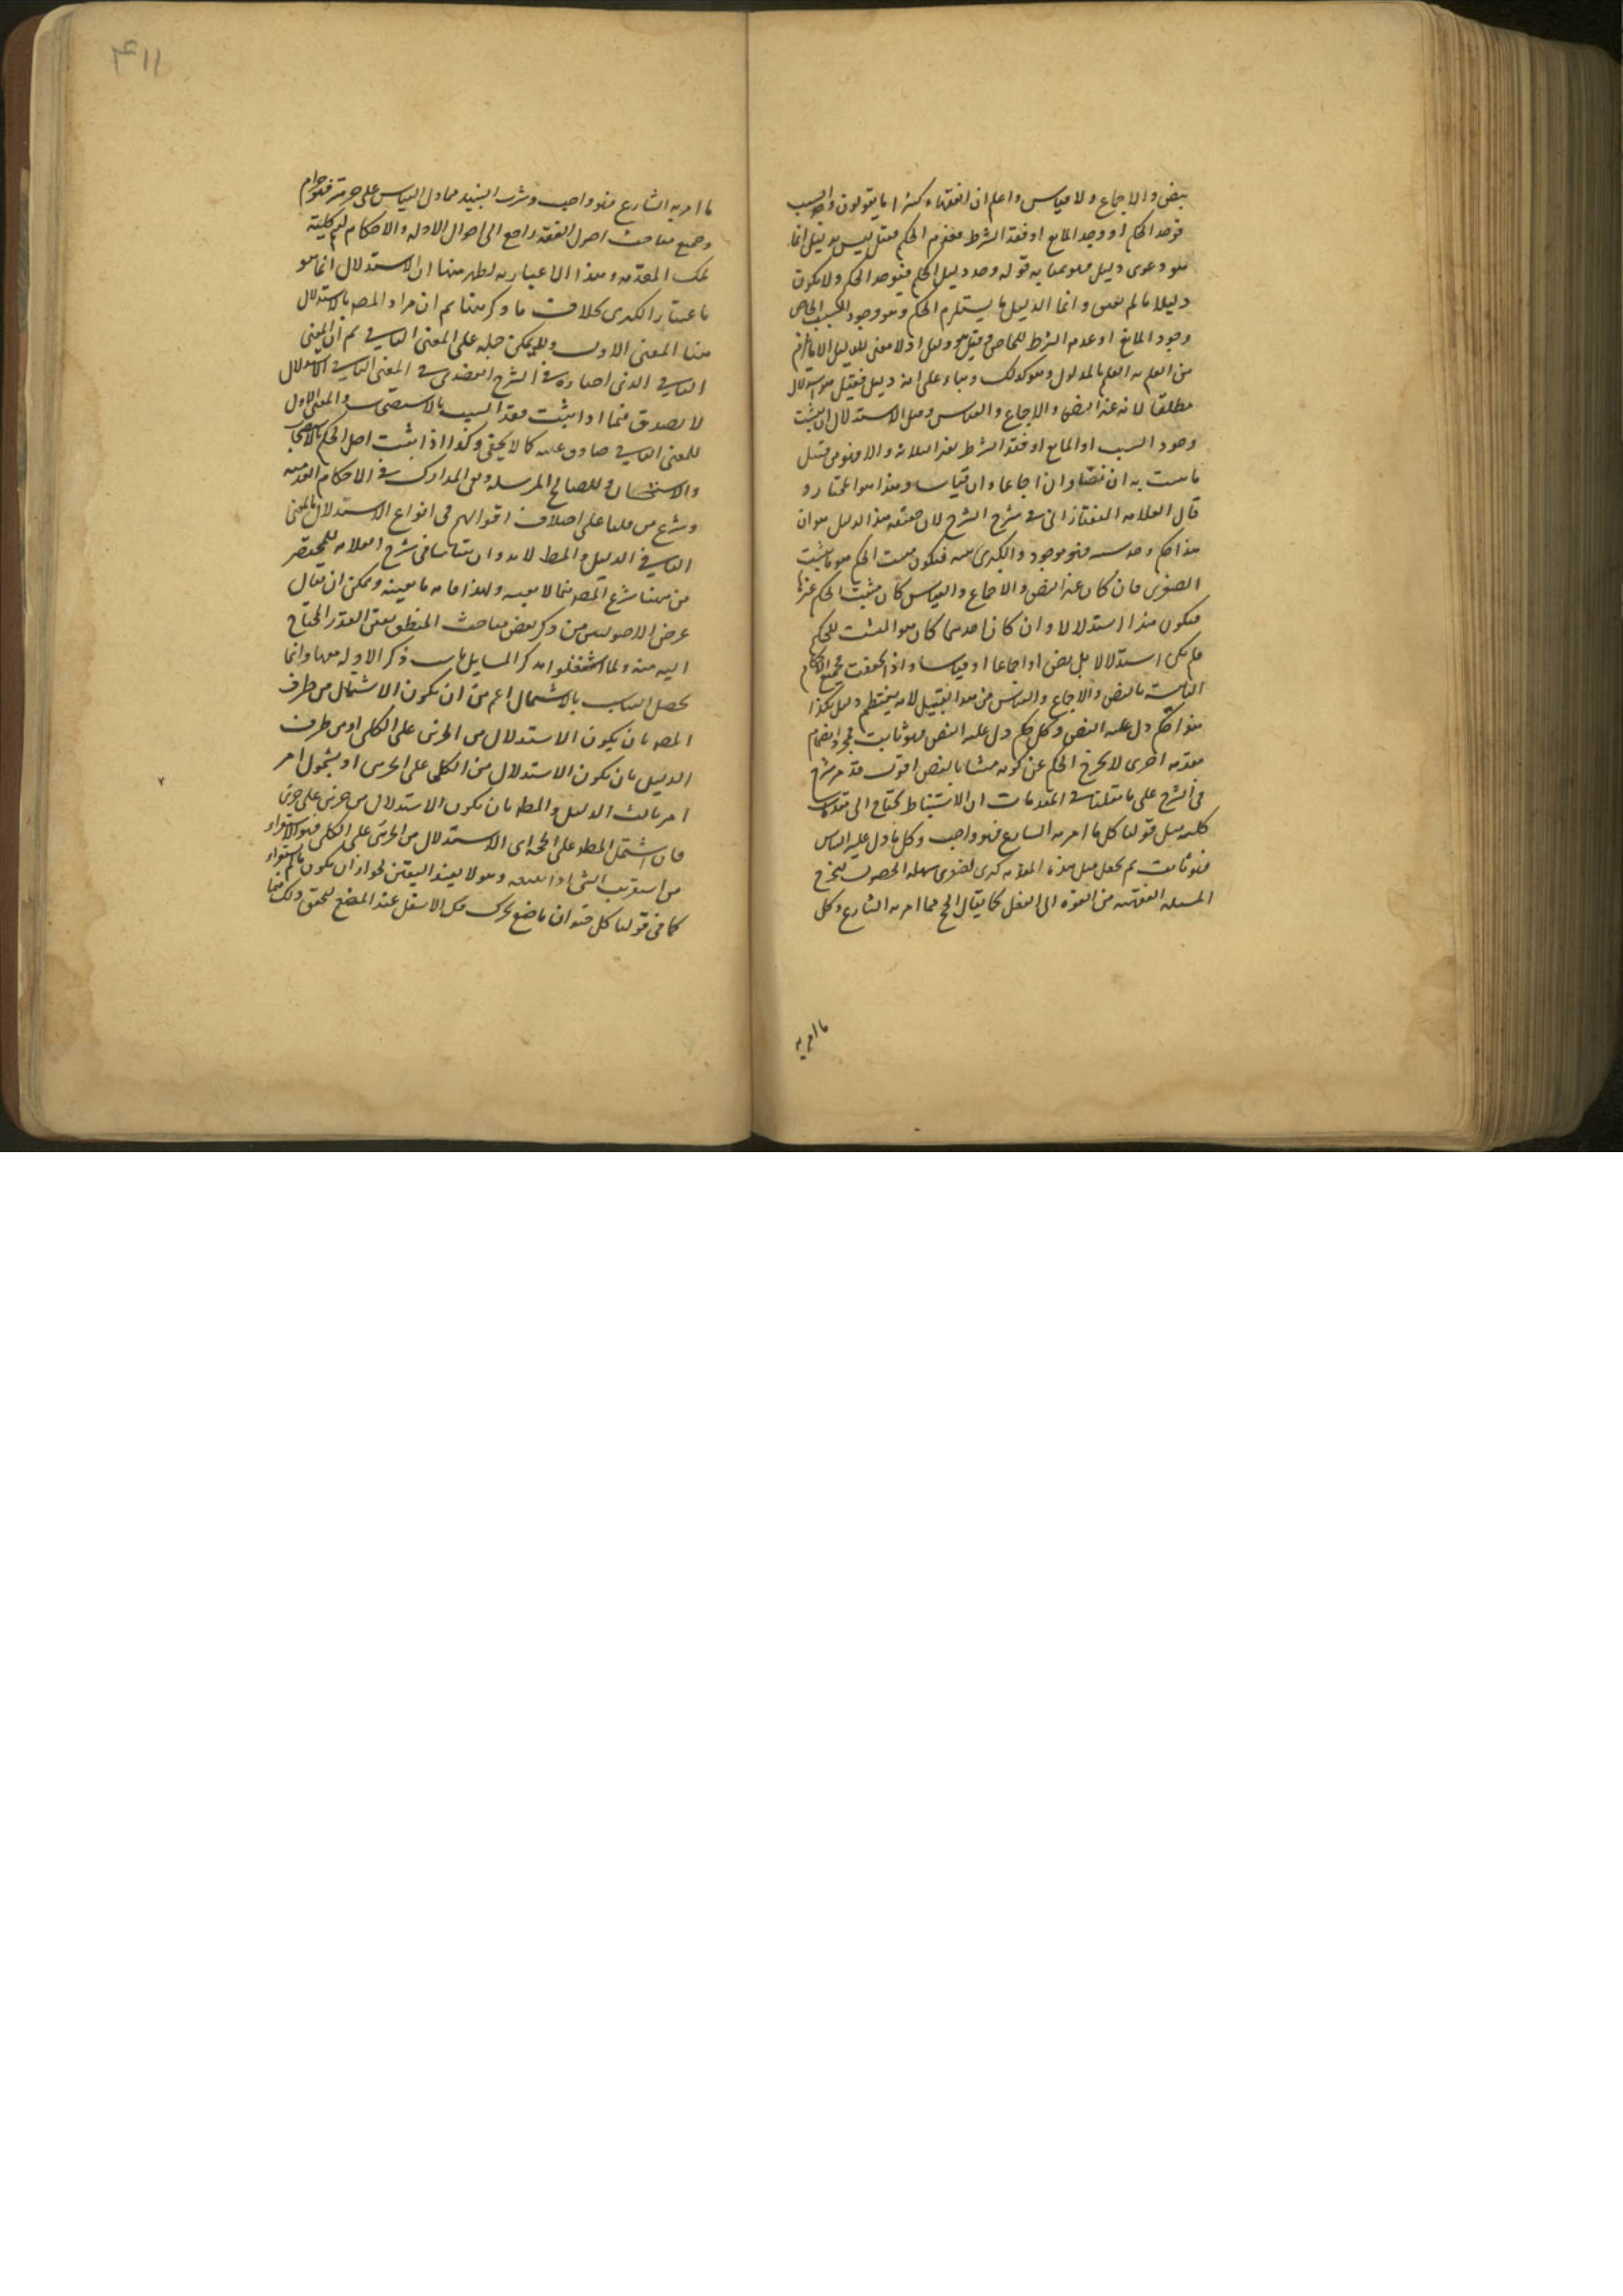 بنص ولا اجماع ولا قياس واعلم ان الفقهاء كثيرا ما يقولون وجد السبب
فوجد الحكم او وجد المانع او فقد الشرط فعدم الحكم فقيل ليس بدليل انما
هو دعوى دليل فهو بمثابة قوله وجد دليل الحكم فيوجد الحكم ولا يكون
دليلا ما لم يعين وانما الدليل ما يستلزم الحكم وهو وجود السبب الخاص
وجود المانع او عدم الشرط الخاص وقيل هو دليل اذ لا معنى للدليل الا ما يلزم
من العلم به العلم بالمدلول وهو كذلك وبناء على انه دليل فقيل هو استدلال
مطلقا لانه غير النص والاجماع والقياس وقيل الاستدلال ان يثبت
وجود السبب او المانع او فقد الشرط بغير الثلاثة والا فهو من قبيل
ما يثبت به ان نصا وان اجماعا وان قياسا وهذا هو المختار و
قال العلامه التفتازاني في شرح الشرح لان حقيقة هذا الدليل هو ان
هذا حكم وجد سببه فهو موجود والكبرى بينه فيكون مثبت الحكم هو ما يثبت
الصغرى فان كان غير النص والاجماع والقياس كان مثبت الحكم غيرها
فيكون هذا استدلالا وان كان احدها كان هو المثبت للحكم
فلم يكن استدلالا بل نص او اجماعا او قياسا واذا تحققت فجميع الاحكام
الثابتة بالنص والاجماع والقياس من هذا القبيل لانه ينتظم دليل هكذا
هذا حكم دل عليه النص وكل حكم دل عليه النص فهو ثابت فمجرد انضمام
مقدمه اخرى لا يخرج الحكم عن كونه مثبتا بالنص اقول قد مر شرح
في الشرح على ما نقلنا في المقدمات ان الاستنباط يحتاج الى مقدمات
كليه مثل قولنا كل ما امر به الشارع فهو واجب وكل ما دل عليه القياس
فهو ثابت ثم يجعل مثل هذه المقدمه كبرى لصغرى سهله الحصول ليخرج
المسئله الفقهيه من القوه الى الفعل كما يقال الحج مما امر به الشارع وكل
ما امر به
٤١١
ما امر به الشارع فهو واجب وشرب النبيذ مما دل القياس على حرمته فهو حرام
وجميع مباحث اصول الفقه راجع الى احوال الادله والاحكام ليعلم كلية
تلك المقدمه وهذه العباره يظهر منها ان الاستدلال انما هو
باعتبار الكبرى بخلاف ما ذكر هنا ثم ان مراد المصـ بالاستدلال
هنا المعنى الاول ويمكن حمله على المعنى الثاني ثم ان المعنى
الثاني الذي اختاره في الشرح العضدي في المعنى الثاني الاستدلال
لا يصدق فيما اذا يثبت فقد السبب بالاستصحاب والمعنى الاول
للمعنى الثاني صادق عليه كما لا يخفى وكذا اذا يثبت اصل الحكم بالاستصحاب
والاستحسان والمصالح المرسله وهي المدارك في الاحكام العدميه
وشرع من قبلنا على اختلاف اقوالهم في انواع الاستدلال بالمعنى
الثاني في الدليل والمط لا بد وان يتناسبا في شرح العلامه للمختصر
من هنا شرع المصـ فيما لا يعنيه ولهذا فانه ما يعنيه ويمكن ان يقال
غرض الاصوليين من ذكر بعض مباحث المنطق بيان القدر المحتاج
اليه منه ولما اشتغلوا بذكر المسايل ناسب ذكر الادله معها وانما
يحصل التناسب بالاشتمال اعم من ان يكون الاشتمال من طرف
المط بان يكون الاستدلال من الجزئي على الكلي او من طرف
الدليل بان يكون الاستدلال من الكلي على الجزئي او بشمول امر
امر ثالث الدليل والمط بان يكون الاستدلال من جزئي على جزئي
فان اشتمل المط على الحجه اي الاستدلال من الجزئي على الكلي فهو الاستقراء
من استقريت الشيء اذا تتبعته وهو لا يفيد اليقين لجواز ان يكون ما لم يستقرء
كما في قولنا كل حيوان ماضغ يحرك فكه الاسفل عند المضغ لتحقق ذلك فيما